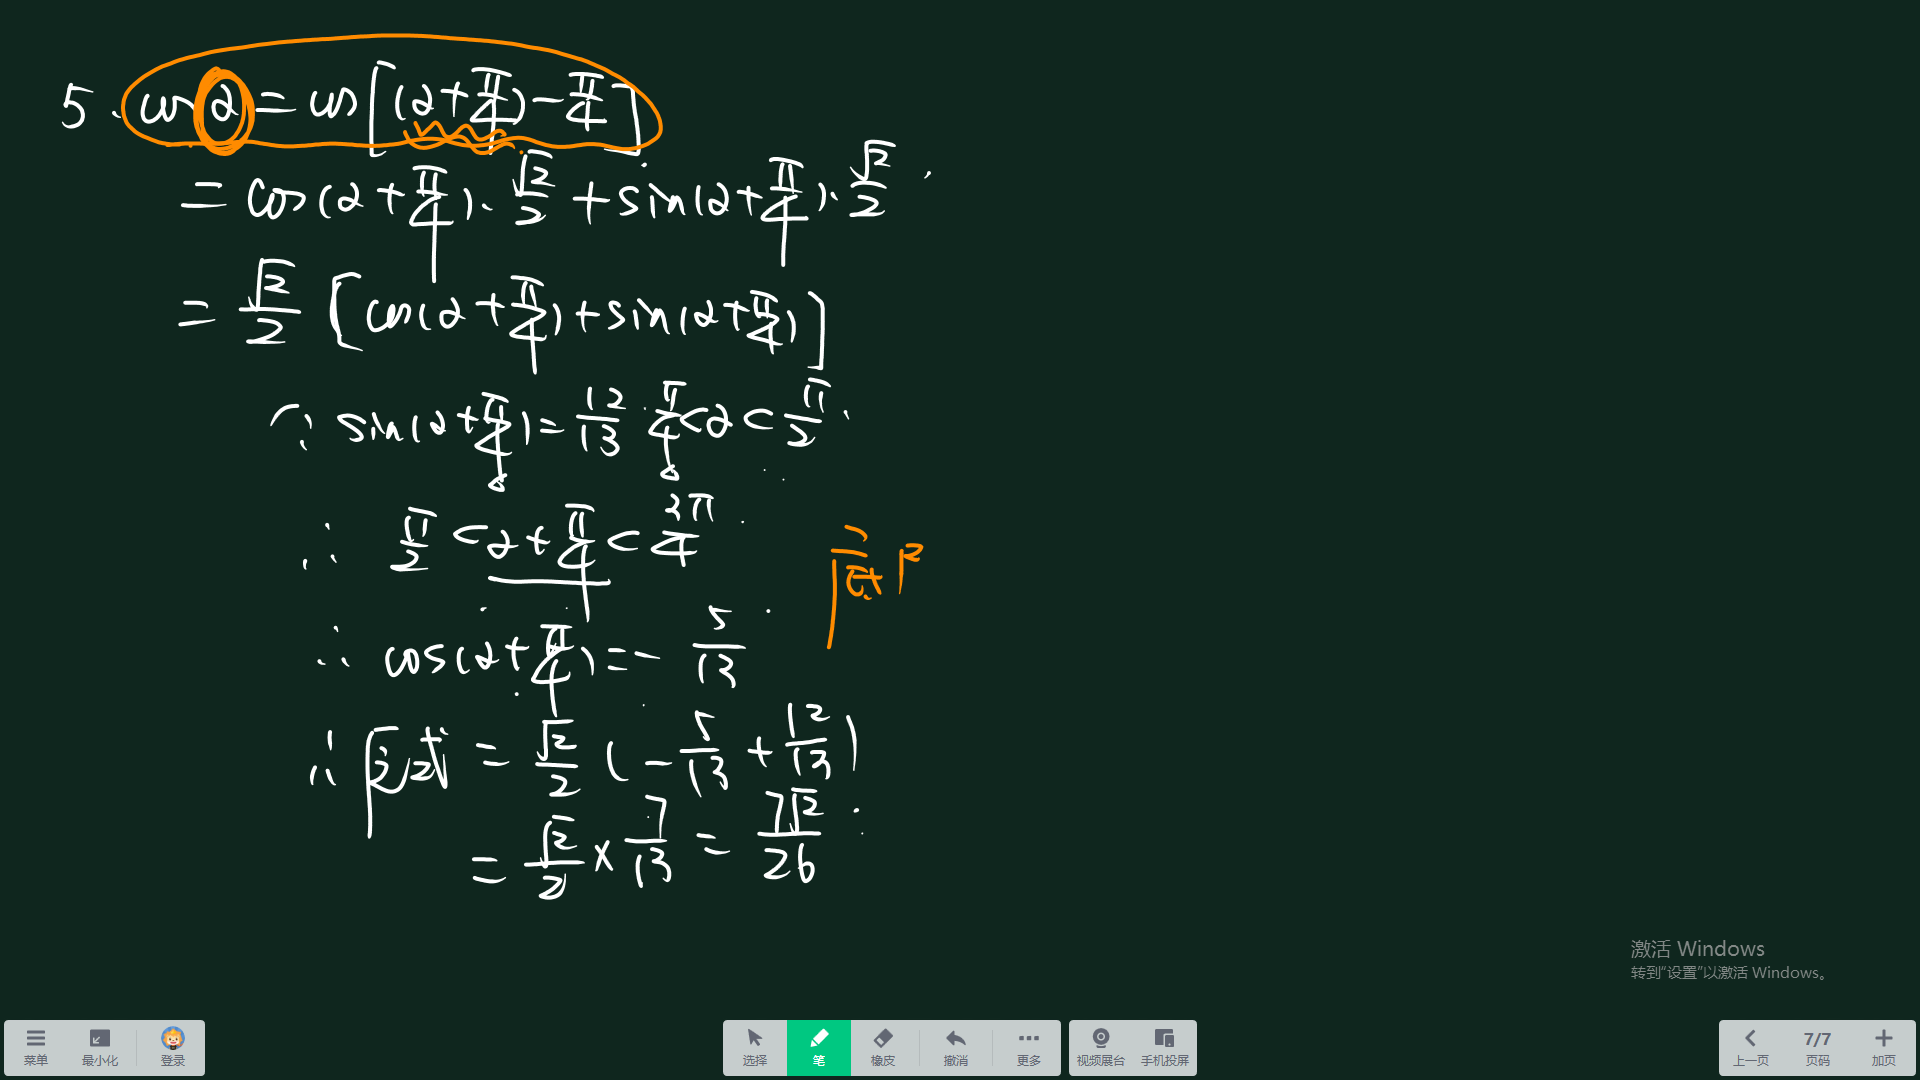 5. cos α = cos[(α+π/4)-π/4]
= cos(α+π/4)·√2/2 + sin(α+π/4)·√2/2
= √2/2 [cos(α+π/4)+sin(α+π/4)]
∵ sin(α+π/4) = 12/13 π/4<α<π/2
∴ π/2 < α+π/4 < 3π/4
∴ cos(α+π/4) = -5/13
∴ 原式 = √2/2 (-5/13 + 12/13)
= √2/2 × 7/13 = 7√2/26
激活 Windows
转到“设置”以激活 Windows。
菜单 最小化 登录 选择 笔 橡皮 撤消 更多 视频展台 手机投屏 上一页 7/7 页码 加页